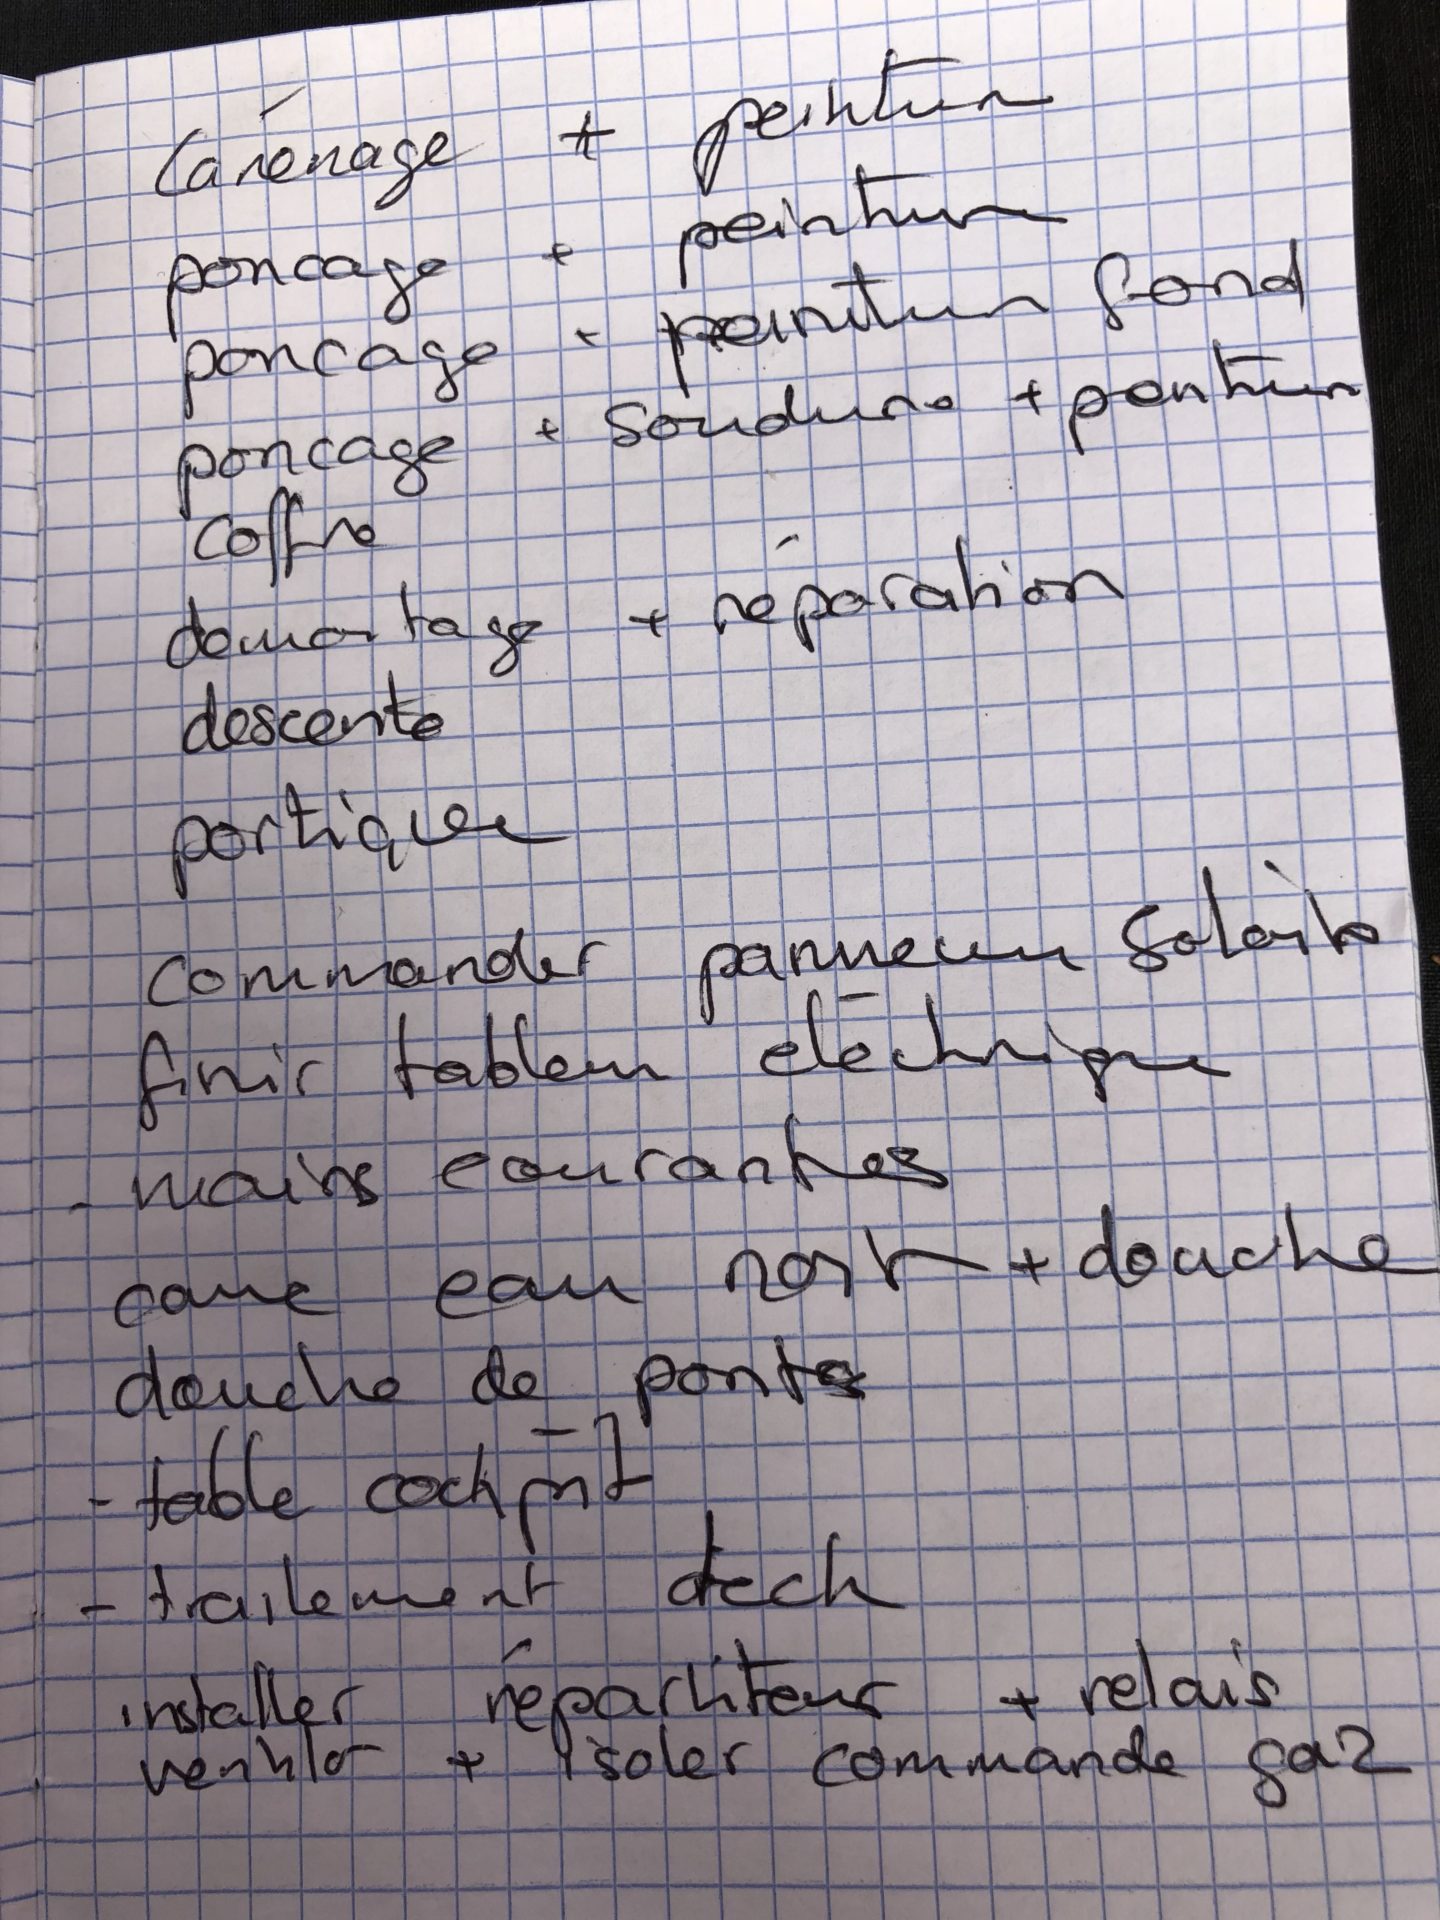 Carénage + peinture
poncage + peinture
poncage + peinture fond
poncage + soudure + peinture
coffre
demontage + réparation
descente
portique
commander panneau solaire
finir tableau eléctrique
- mains courantes
cave eau noir + douche
douche de ponts
- table cockpit
- traitement teck
installer répartiteur + relais
ventilo + isoler commande gaz